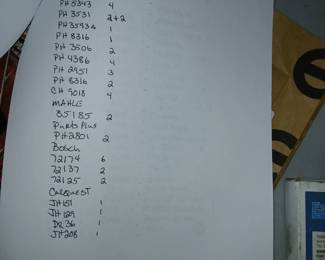 PH 5343 4
PH 3531 2+2
PH 3593A 1
PH 8316 1
PH 3506 2
PH 4386 4
PH 2951 3
PH 8316 2
CH 9018 4
MAHLE
35185 2
Parts Plus
PH2801 2
Bosch
72174 6
72137 2
72125 2
CarQuest
JH151 1
JH129 1
DR36 1
JH208 1